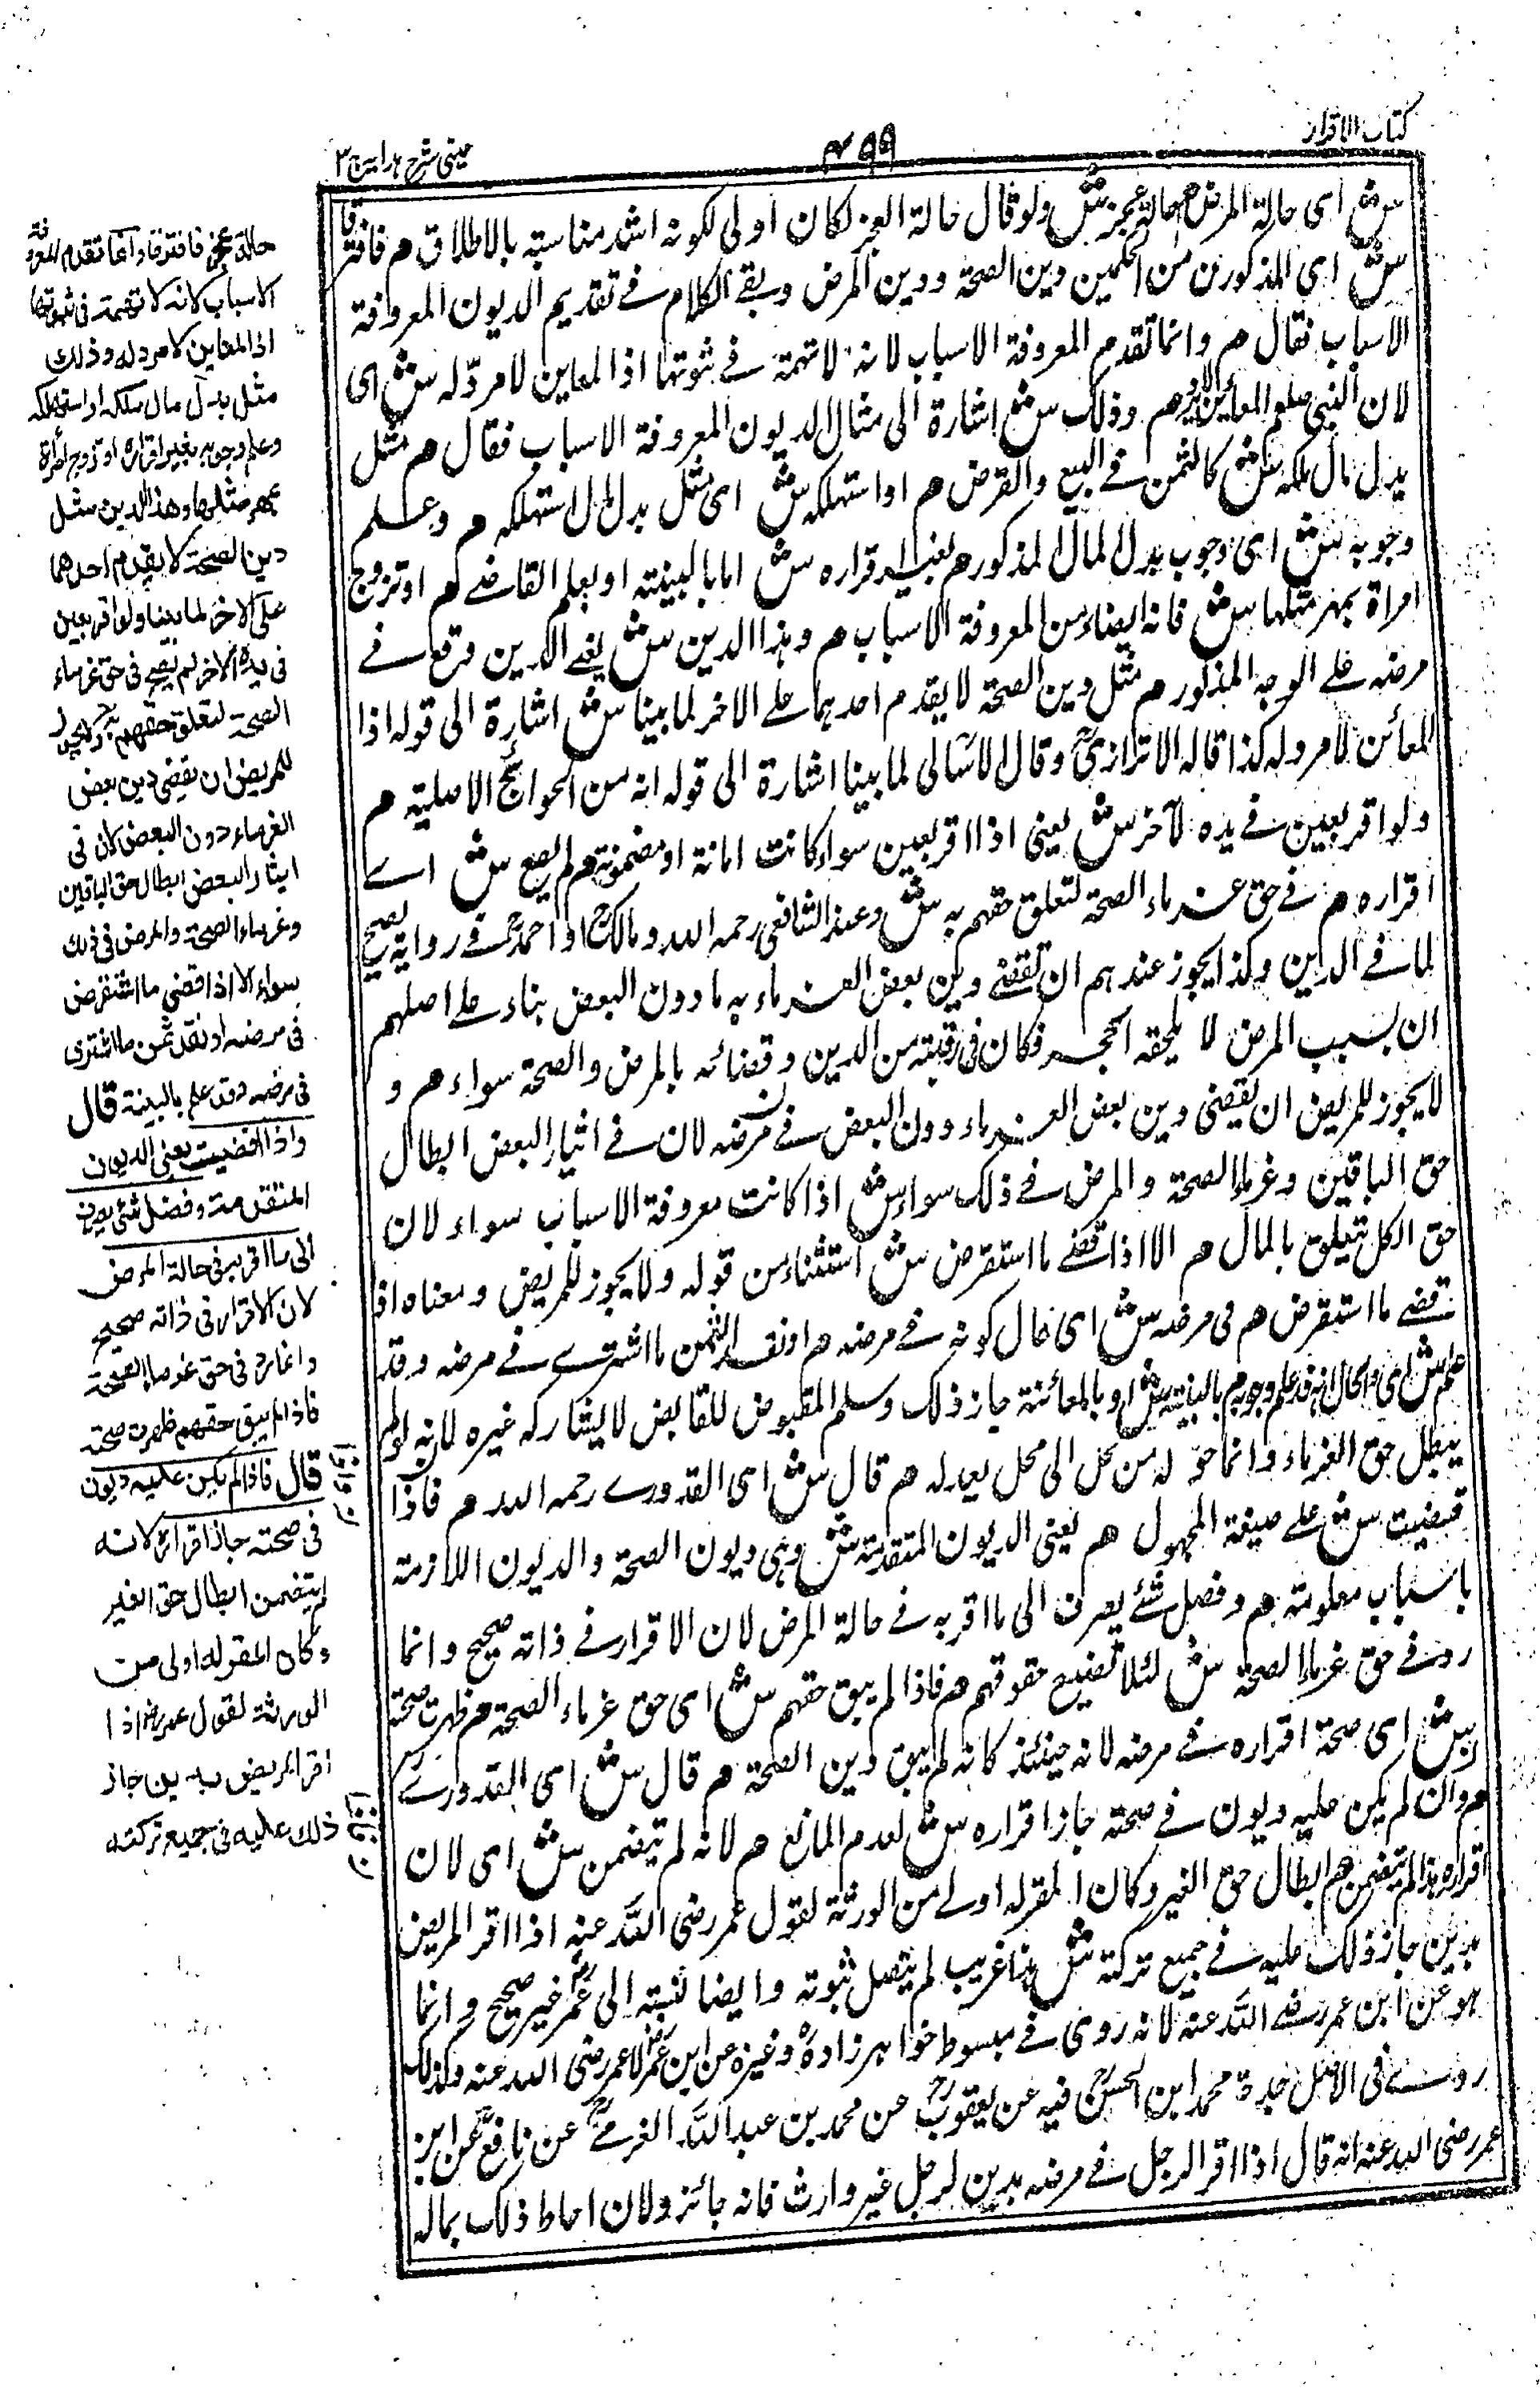 كتاب الاقرار
٤٩٩
عينى شرح هدايه ج ٣
ش اى حالة المرض هم حالة عجز ش ولو قال حالة العجز لكان اولى لكونه اشد مناسبته بالاطلاق هم فافترقا
ش اى المذكور من الحكمين دين الصحة ودين المرض وبقى الكلام فى تقديم الديون المعروفة
الاسباب فقال هم وانما تقدم المعروفة الاسباب لانه لا تهمة فى ثبوتها اذ المعاين لا مرد له ش اى
لان النبى صلعم المعاين هم وذلك ش اشارة الى مثال الديون المعروفة الاسباب فقال هم مثل
بدل مال ملكه ش كالثمن فى البيع والقرض هم او استهلكه ش اى مثل بدل مال استهلكه هم وعلم
وجوبه ش اى وجوب بدل المال المذكور هم بغير اقراره ش اما بالبينته او بعلم القاضى هم او تزوج
امراة بمهر مثلها ش فانه ايضا من المعروفة الاسباب هم وهذا الدين ش يعنى الدين وقع فى
مرضه على الوجه المذكور هم مثل دين الصحة لا يقدم احدهما على الاخر لما بينا ش اشارة الى قوله اذا
المعائن لا مرد له كذا قاله الاترازى وقال الاكمل لما بينا اشارة الى قوله انه من الحوائج الاصلية هم
ولو اقر بعين فى يده لآخر ش يعنى اذا اقر بعين سواء كانت امانة او مضمونة هم لم يصح ش اى
اقراره هم فى حق غرماء الصحة لتعلق حقهم به ش وعند الشافعى رحمه الله ومالك واحمد فى رواية يصح
لما فى الدين وكذا يجوز عندهم ان يقضى دين بعض الغرماء به مادون البعض بناء على اصلهم
ان بسبب المرض لا يلحقه الحجر فكان فى رقبته من الدين وقضائه بالمرض والصحة سواء هم و
لا يجوز للمريض ان يقضى دين بعض الغرماء دون البعض فى مرضه لان فى ايثار البعض ابطال
حق الباقين وغرماء الصحة والمرض فى ذلك سواء ش اذا كانت معروفة الاسباب سواء لان
حق الكل تتعلق بالمال هم الا اذا قضى ما استقرض ش استثناء من قوله ولا يجوز للمريض ومعناه اذا
قضى ما استقرض هم فى مرضه ش اى حال كونه فى مرضه هم او نقد الثمن ما اشترى فى مرضه وقد
علم ش اى والحال انه قد علم وجوبه هم بالبينة ش او بالمعائنة جاز ذلك وسلم المقبوض للقابض لا يشاركه غيره لانه لم
يبطل حق الغرماء وانما حوله من محل الى محل يعدله هم قال ش اى القدورى رحمه الله هم فاذا
قضيت ش على صيغة المجهول هم يعنى الديون المتقدمة ش وهى ديون الصحة والديون اللازمة
باسباب معلومة هم وفضل شئ يصرف الى ما اقر به فى حالة المرض لان الاقرار فى ذاته صحيح وانما
رد فى حق غرماء الصحة ش لئلا تضيع حقوقهم هم فاذا لم يبق حقهم ش اى حق غرماء الصحة هم ظهرت صحته
ش اى صحة اقراره فى مرضه لانه حينئذ كانه لم يبق دين الصحة هم قال ش اى القدورى
هم وان لم يكن عليه ديون فى صحته جاز اقراره ش لعدم المانع هم لانه لم يتضمن ش اى لان
اقراره هذا لم يتضمن هم ابطال حق الغير وكان المقر له اولى من الورثة لقول عمر رضى الله عنه اذا اقر المريض
بدين جاز ذلك عليه فى جميع تركته ش هذا غريب لم يتصل ثبوته وايضا نسبته الى عمر غير صحيح وانما
هو عن ابن عمر رضى الله عنه لانه روى فى مبسوط خواهر زاده وغيره عن ابن عمر لا عمر رضى الله عنه وكذلك
روى فى الاصل محمد ابن الحسن فيه عن يعقوب عن محمد بن عبد الله العرزمى عن نافع عن ابن
عمر رضى الله عنه انه قال اذا اقر الرجل فى مرضه بدين لرجل غير وارث فانه جائز ولان احاط ذلك بماله
حالة عجز فافترقا وانما تقدم المعروفة
الاسباب لانه لا تهمة فى ثبوتها
اذ المعاين لا مرد له وذلك
مثل بدل مال ملكه او استهلكه
وعلم وجوبه بغير اقراره او تزوج امرأة
بمهر مثلها وهذا الدين مثل
دين الصحة لا يقدم احدهما
على الاخر لما بينا ولو اقر بعين
فى يده لاخر لم يصح فى حق غرماء
الصحة لتعلق حقهم به ولا يجوز
للمريض ان يقضى دين بعض
الغرماء دون البعض لان فى
ايثار البعض ابطال حق الباقين
وغرماء الصحة والمرض فى ذلك
سواء الا اذا قضى ما استقرض
فى مرضه او نقد ثمن ما اشترى
فى مرضه وقد علم بالبينة قال
واذا قضيت يعنى الديون
المتقدمة وفضل شئ يصرف
الى ما اقر به فى حالة المرض
لان الاقرار فى ذاته صحيح
وانما رد فى حق غرماء الصحة
فاذا لم يبق حقهم ظهرت صحته
قال فاذا لم يكن عليه ديون
فى صحته جاز اقراره لانه
لم يتضمن ابطال حق الغير
وكان المقر له اولى من
الورثة لقول عمر رض اذا
اقر المريض بدين جاز
ذلك عليه فى جميع تركته